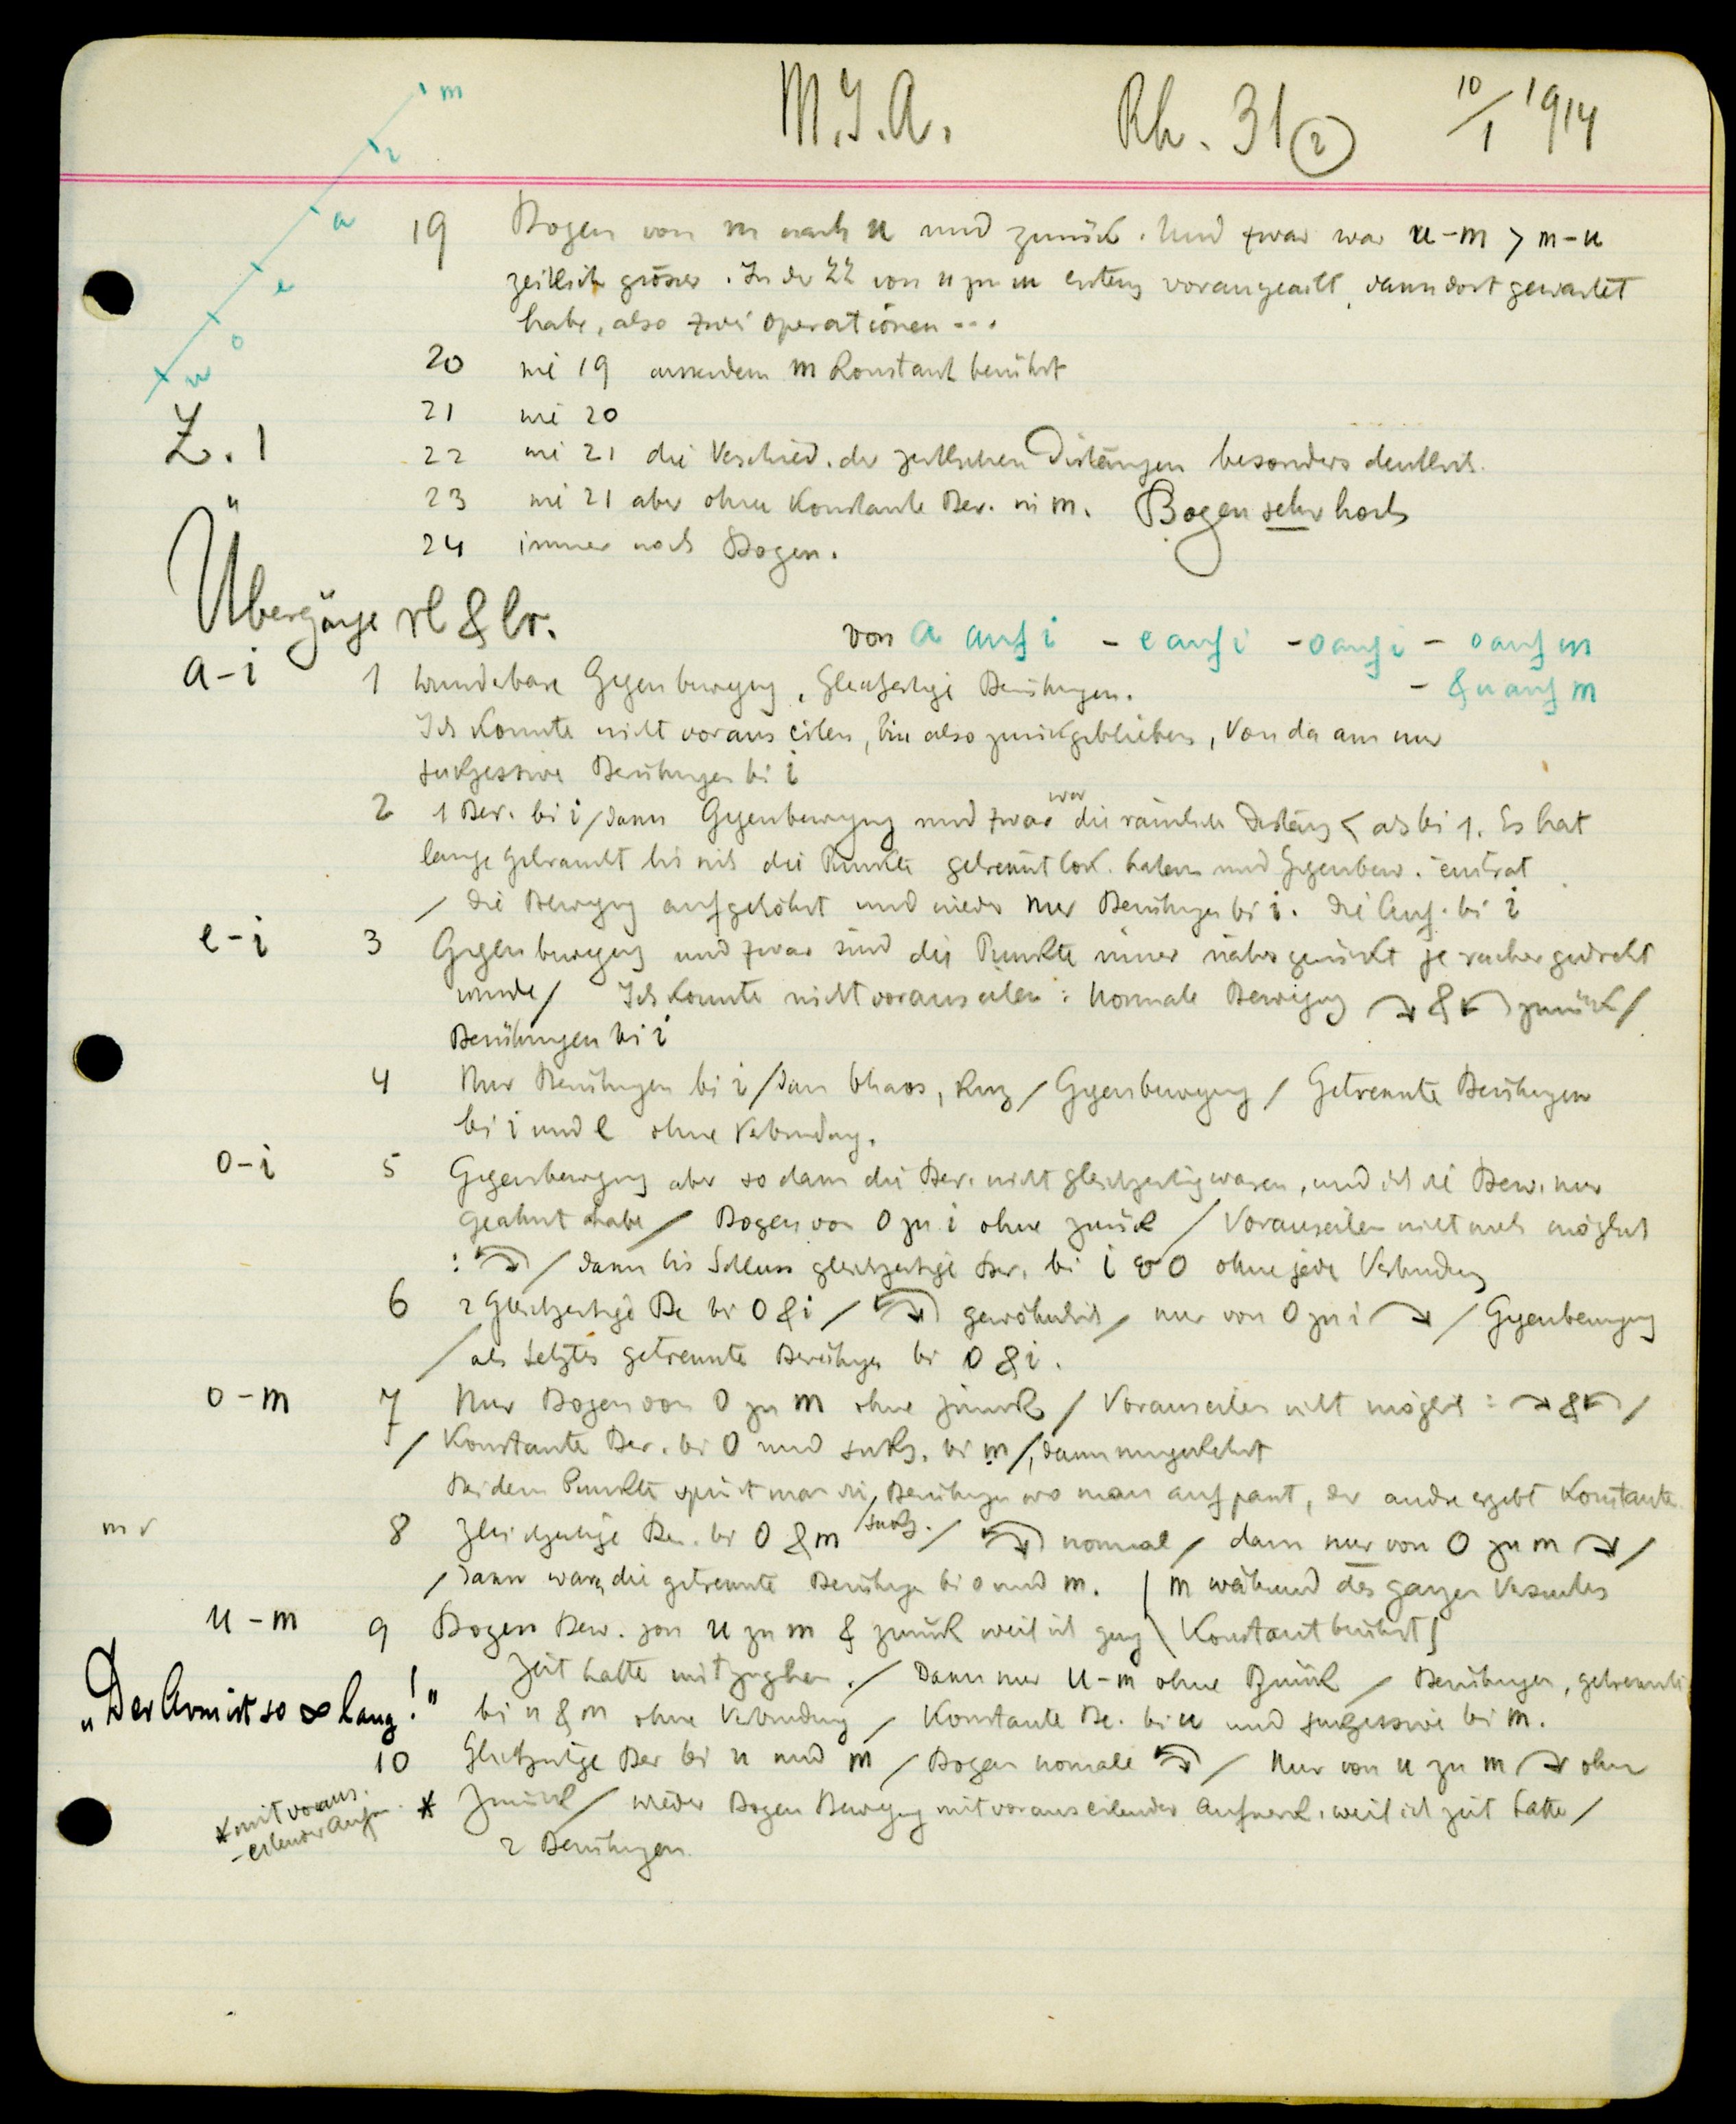 M.J.A. Rh. 31 (2) 10/1 1914
m
i
a
e
o
u
19 Bogen von m nach u und zurück. Und zwar war u-m > m-u
zeitlich grösser. In der ZZ von u zu m erstens vorangeeilt, dann dort gewartet
habe, also zwei Operationen ...
20 wie 19 ausserdem m Konstant berührt
Z. 1
21 wie 20
22 wie 21 die Verschied. der zeitlichen Distanzen besonders deutlich.
23 wie 21 aber ohne Konstante Ber. in m. Bogen sehr hoch
24 immer noch Bogen.
Übergänge rl & lr.
von a auf i - e auf i - o auf i - o auf m
- & u auf m
a-i 1 Wunderbare Gegenbewegung, Gleichzeitige Berührungen.
Ich konnte nicht voraus eilen, bin also zurückgeblieben, Von da an nur
sukzessive Berührungen bei i
2 1 Ber. bei i / dann Gegenbewegung und zwar war die räumliche Distanz < als bei 1. Es hat
lange gebraucht bis sich die Punkte getrennt lok. haben und Gegenbew. eintrat
/ die Bewegung aufgehört und wieder nur Berührungen bei i. die Auf. bei i
e-i 3 Gegenbewegung und zwar sind die Punkte immer näher gerückt je rascher gedreht
wurde / Ich konnte nicht vorauseilen: Normale Bewegung & zurück /
Berührungen bei i
4 Nur Berührungen bei i / dann Chaos, kurz / Gegenbewegung / Getrennte Berührungen
bei i und e ohne Verbindung.
o-i 5 Gegenbewegung aber so dass die Ber. nicht gleichzeitig waren, und ich die Bew. nur
geahnt habe / Bogen von o zu i ohne zurück / Vorauseilen nicht mehr möglich
: / dann bis Schluss gleichzeitige Ber. bei i & o ohne jede Verbindung
6 2 Gleichzeitige Be bei o & i / gewöhnlich / nur von o zu i / Gegenbewegung
/ als Letztes getrennte Berührungen bei o & i.
o-m 7 Nur Bogen von o zu m ohne zurück / Vorauseilen nicht möglich: & /
/ Konstante Ber. bei o und sukz. bei m /, dann umgekehrt
Bei dem Punkte spürt man die Berührungen wo man aufpasst, der andre ergibt Konstante
8 gleichzeitige Ber. bei o & m sukz. / normal / dann nur von o zu m /
/ dann waren die getrennte Berührungen bei o und m. ( m während des ganzen Versuches
u-m 9 Bogen Bew. von u zu m & zurück weil ich genug Konstant berührt )
Zeit hatte mitzugehen. / Dann nur u-m ohne Zurück / Berührungen, getrennte
„Der Arm ist so ∞ lang!"
bei u & m ohne Verbindung / Konstante Be. bei u und sukzessive bei m.
10 Gleichzeitige Ber bei u und m / Bogen normale / Nur von u zu m ohne
* Zurück / wieder Bogen Bewegung mit vorauseilender Aufmerk. weil ich Zeit hatte /
2 Berührungen
* mit voraus-
-eilender Aufm.